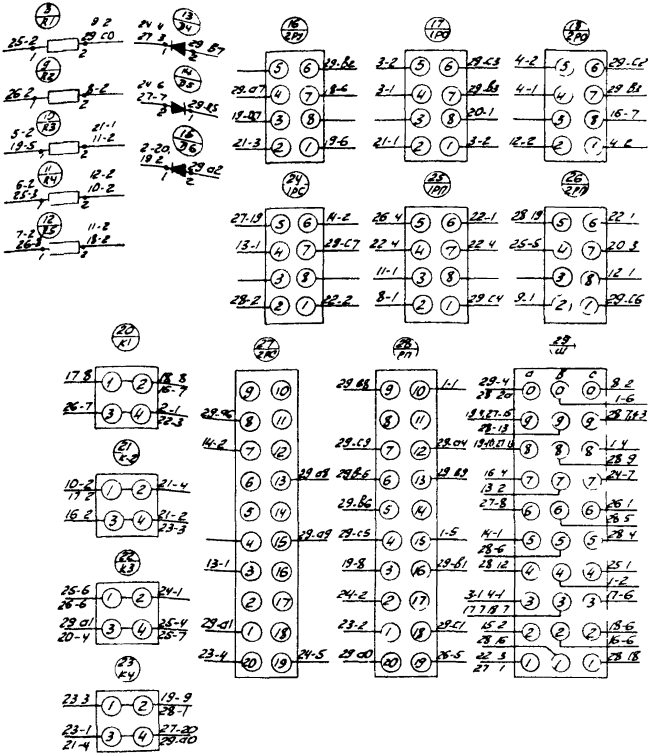 8
R1
9 2
25-2
29 C0
1
2
9
R2
26 2
8-2
2
10
R3
5-2
21-1
19-5
11-2
2
11
R4
6-2
12-2
25-3
10-2
1
2
12
R5
7-2
11-2
26-3
18-2
1
13
24 4
27 3
29 B7
1
2
24 6
27-7
1
2-20
19 2
29 a2
1
2
16
2РУ
5 6
29-B2
29.a7
4 7
18-6
3 8
21-3
2 1
19-6
17
1РО
3-2
5 6
29-C3
3-1
4 7
29.B3
3 8
20-1
21-1
2 1
3-2
18
2РО
4-2
5 6
29-C2
4-1
4 7
29 B3
5 8
16-7
12-2
2 1
4-2
24
1РС
27-19
5 6
14-2
13-1
4 7
29-C7
3 8
28-2
2 1
22-2
25
1РП
26 4
5 6
22-1
22 4
4 7
22 4
11-1
3 8
8-1
2 1
29 C4
26
2РП
28 19
5 6
22 1
25-5
4 7
20 3
3 8
12 1
9.1
2 1
29.C6
20
К1
17.8
1 2
18 8
16-7
26-7
3 4
2-1
22-3
21
К-2
10-2
1 2
21-4
19 2
16 2
3 4
21-2
23-3
22
К3
25-6
1 2
24-1
26-6
29 a1
3 4
25-4
20-4
25-7
23
К4
23 3
1 2
19-9
28-1
23-1
3 4
27-20
21-4
29.a0
27
2РС
9 10
29.a6
8 11
14-2
7 12
6 13
29 a8
5 14
4 15
29.a9
13-1
3 16
2 17
29.a1
1 18
23-4
20 19
24-5
28
РП
29 B8
9 10
1-1
8 11
29-C9
7 12
29.a4
29-B-5
6 13
29 B9
29-B6
5 14
29-C5
4 15
1-5
19-8
3 16
29-B1
24-2
2 17
23-2
1 18
29C1
29 a0
20 19
26-5
29
Ш
а в с
29-4
0 0 0
8 2
28 20
1-6
9 9 9
28-13
8 8 8
1 4
28 9
16 4
7 7 7
24-7
13 2
27-8
6 6 6
26 1
28 5
14-1
5 5 5
28 4
28-6
28 12
4 4 4
25 1
1-2
3-1 4-1
3 3 3
17-6
17 7 18 7
15 2
2 2 2
18-6
28 16
16-6
22 3
1 1 1
28 18
27 1